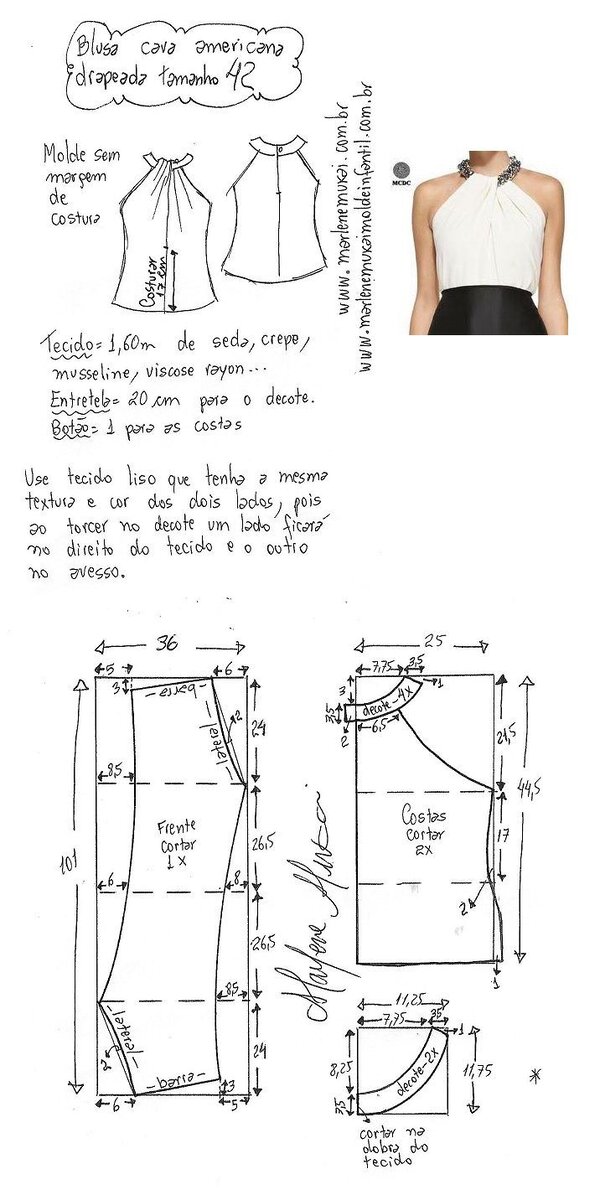 Blusa cava americana
drapeada tamanho 42
Molde sem
margem
de
costura
Costurar
17 cm
www.marlenemukai.com.br
www.marlenemukaimoldeinfantil.com.br
MCDC
Tecido= 1,60m de seda, crepe,
musseline, viscose rayon...
Entretela= 20 cm para o decote.
Botão= 1 para as costas
Use tecido liso que tenha a mesma
textura e cor dos dois lados, pois
ao torcer no decote um lado ficará
no direito do tecido e o outro
no avesso.
36
5
6
3
-barra-
-lateral-
2
24
8,5
Frente
cortar
1x
26,5
101
6
8
26,5
8,5
-lateral-
2
24
-barra-
3
6
5
Marlene Mukai
25
7,75
3,5
1
3
3,5
decote-4x
2
6,5
21,5
44,5
Costas
cortar
2x
17
2
1
11,25
7,75
3,5
1
8,25
decote-2x
11,75
3,5
*
cortar na
dobra do
tecido